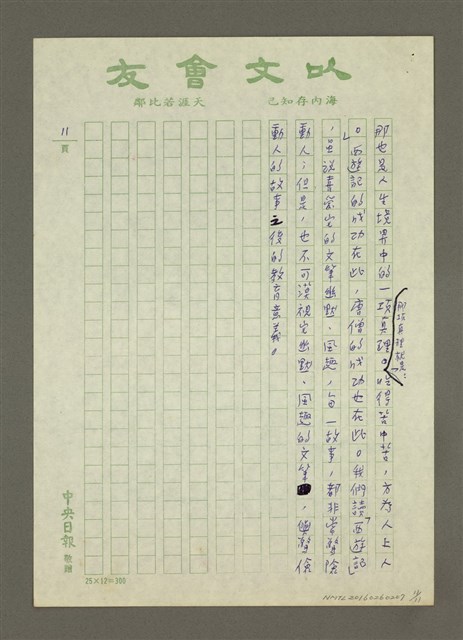 以文會友
海內存知己
天涯若比鄰
那也是人生境界中的一項真理。吃得苦中苦,方為人上人
那項真理就是:
」。西遊記的成功在此,唐僧的成功也在此。我們讀「西遊記
,雖說喜愛它的文筆幽默、風趣,每一故事,都非常驚險
動人;但是,也不可漠視它幽默、風趣的文筆,與驚險
動人的故事之後的教育意義。
11
頁
中央日報
敬贈
25×12=300
NMTL20160260207
11/11